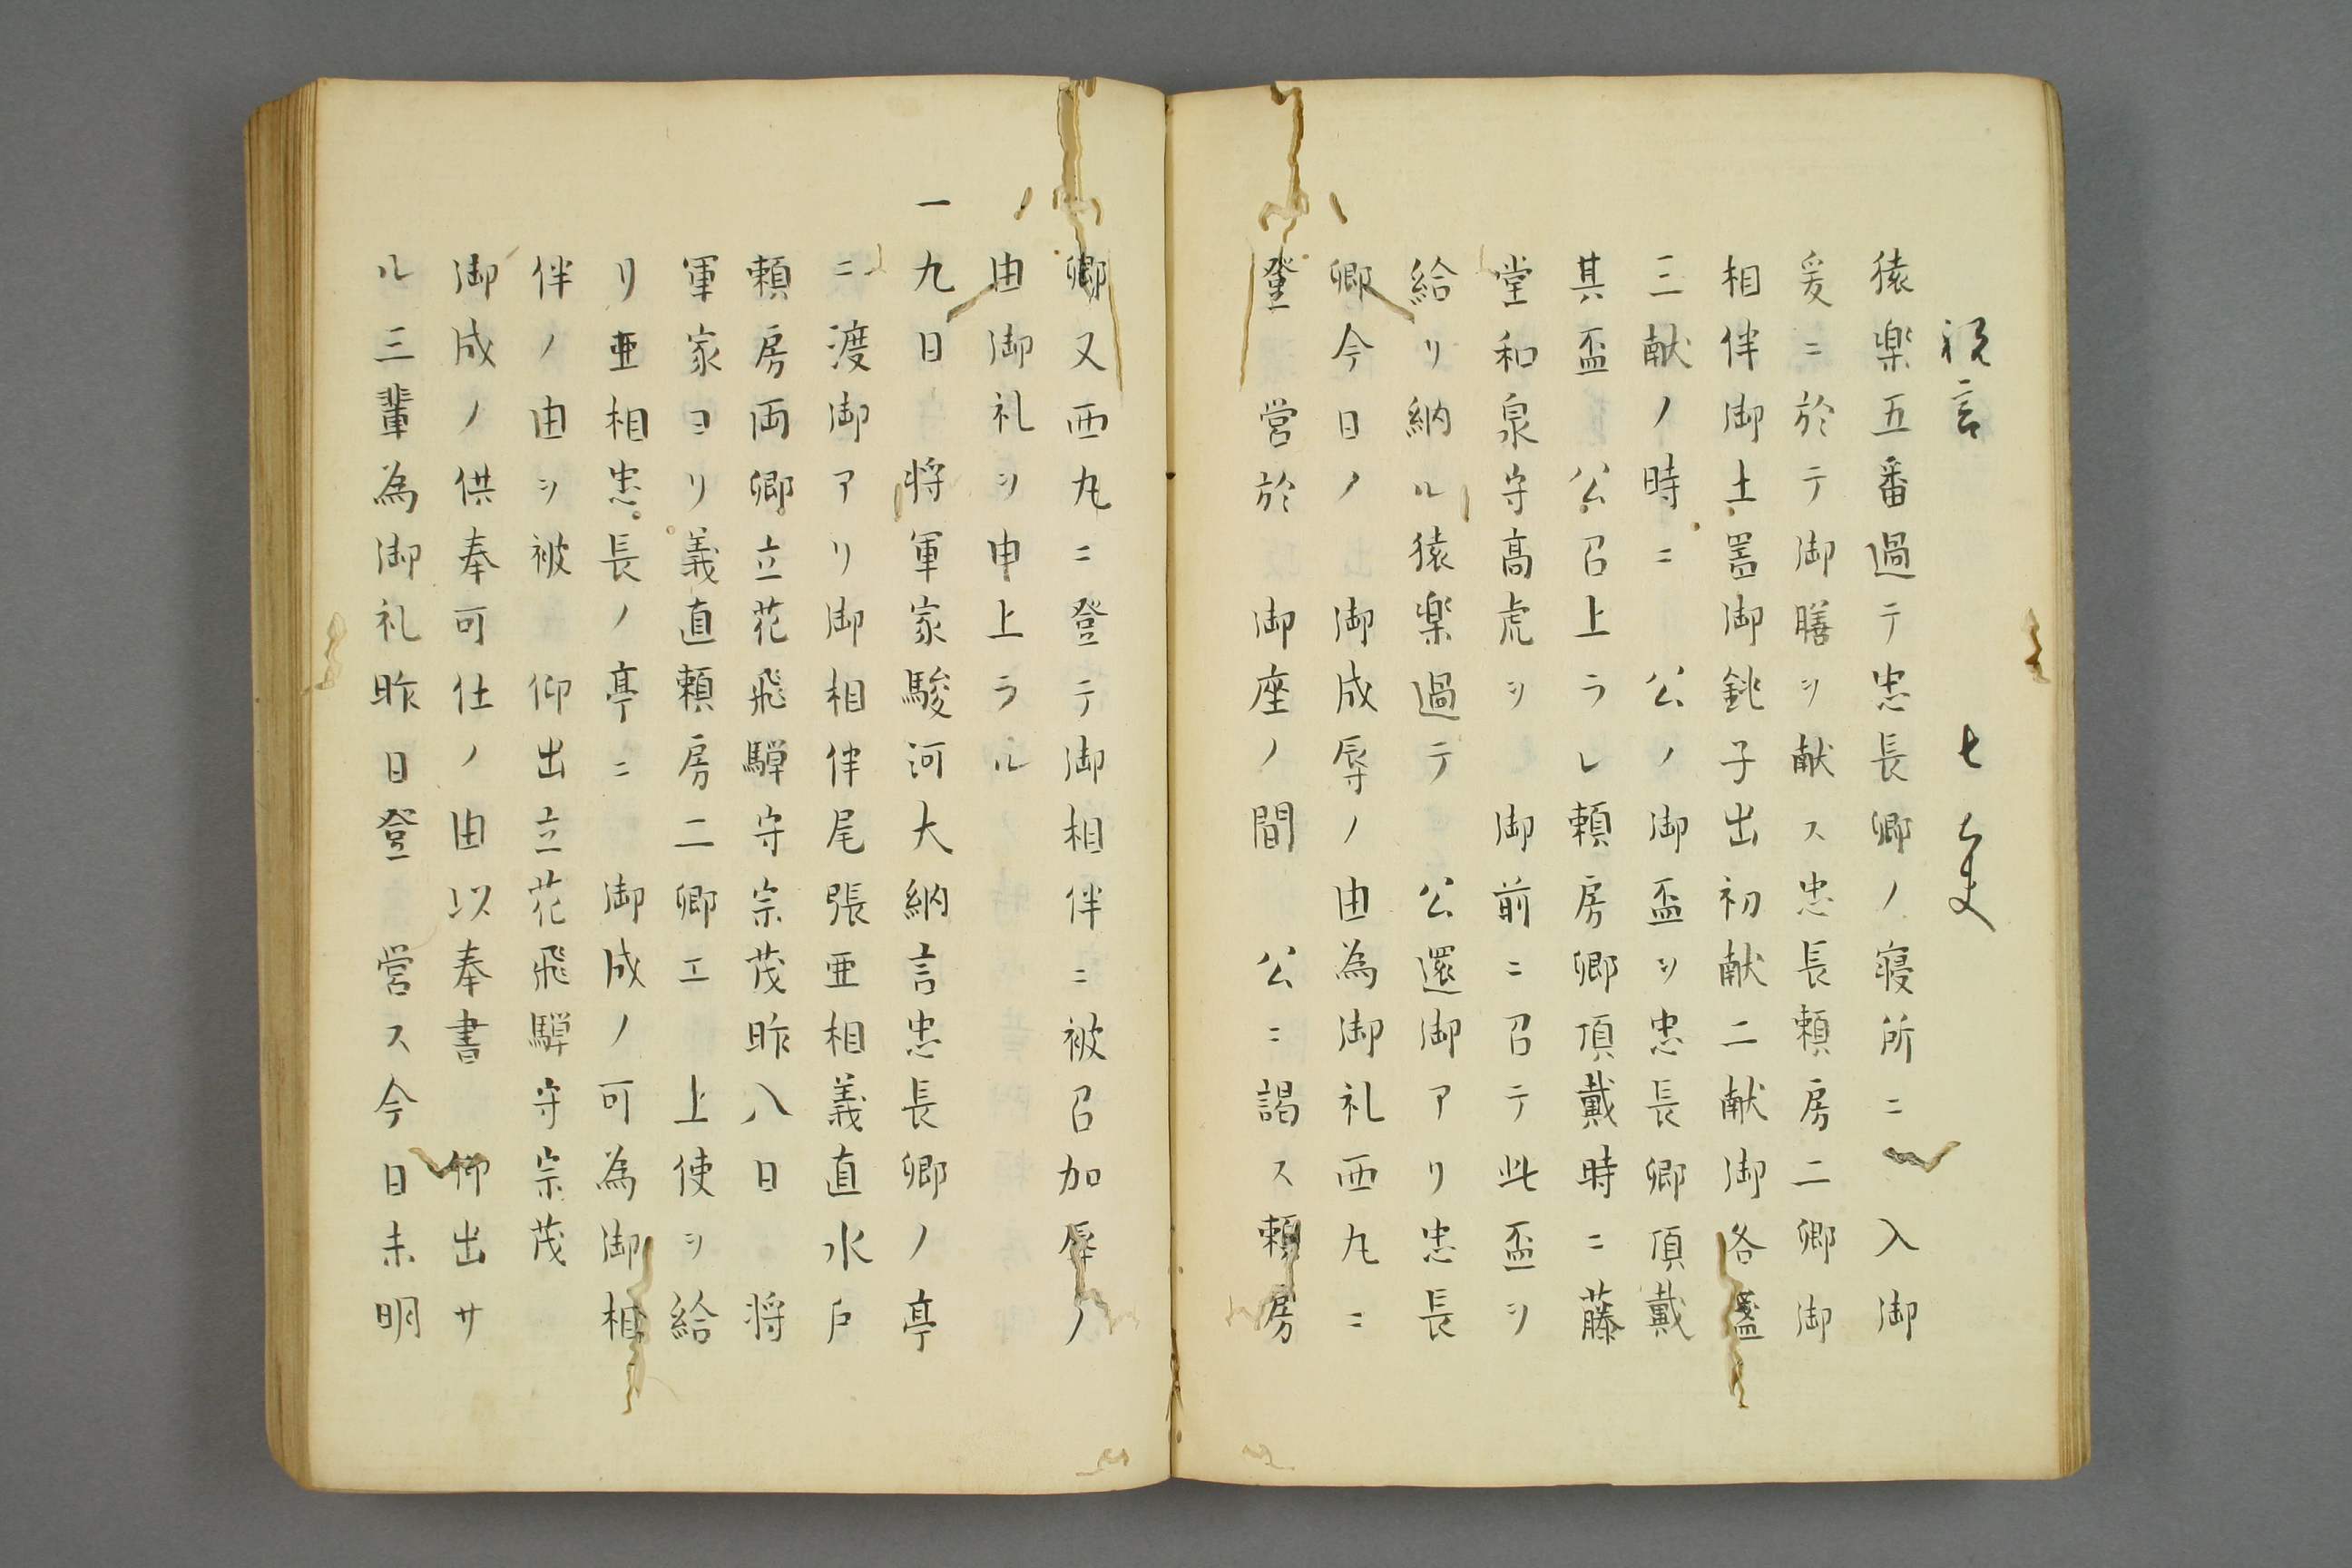 祝言　七太夫
猿楽五番過テ忠長卿ノ寝所ニ　入御
爰ニ於テ御膳ヲ献ス忠長頼房二卿御
相伴御土器御銚子出初献二献御各盞
三献ノ時ニ　公ノ御盃ヲ忠長卿頂戴
其盃　公召上ラレ頼房卿頂戴時ニ藤
堂和泉守高虎ヲ　御前ニ召テ此盃ヲ
給リ納ル猿楽過テ　公還御アリ忠長
卿今日ノ　御成辱ノ由為御礼西丸ニ
登　営於　御座ノ間　公ニ謁ス頼房
卿又西丸ニ登テ御相伴ニ被召加辱ノ
由御礼ヲ申上ラル
一九日　将軍家駿河大納言忠長卿ノ亭
ニ渡御アリ御相伴尾張亜相義直水戸
頼房両卿立花飛騨守宗茂昨八日　将
軍家ヨリ義直頼房二卿エ　上使ヲ給
リ亜相忠長ノ亭ニ　御成ノ可為御相
伴ノ由ヲ被　仰出立花飛騨守宗茂
御成ノ供奉可仕ノ由以奉書　仰出サ
ル三輩為御礼昨日登　営ス今日未明